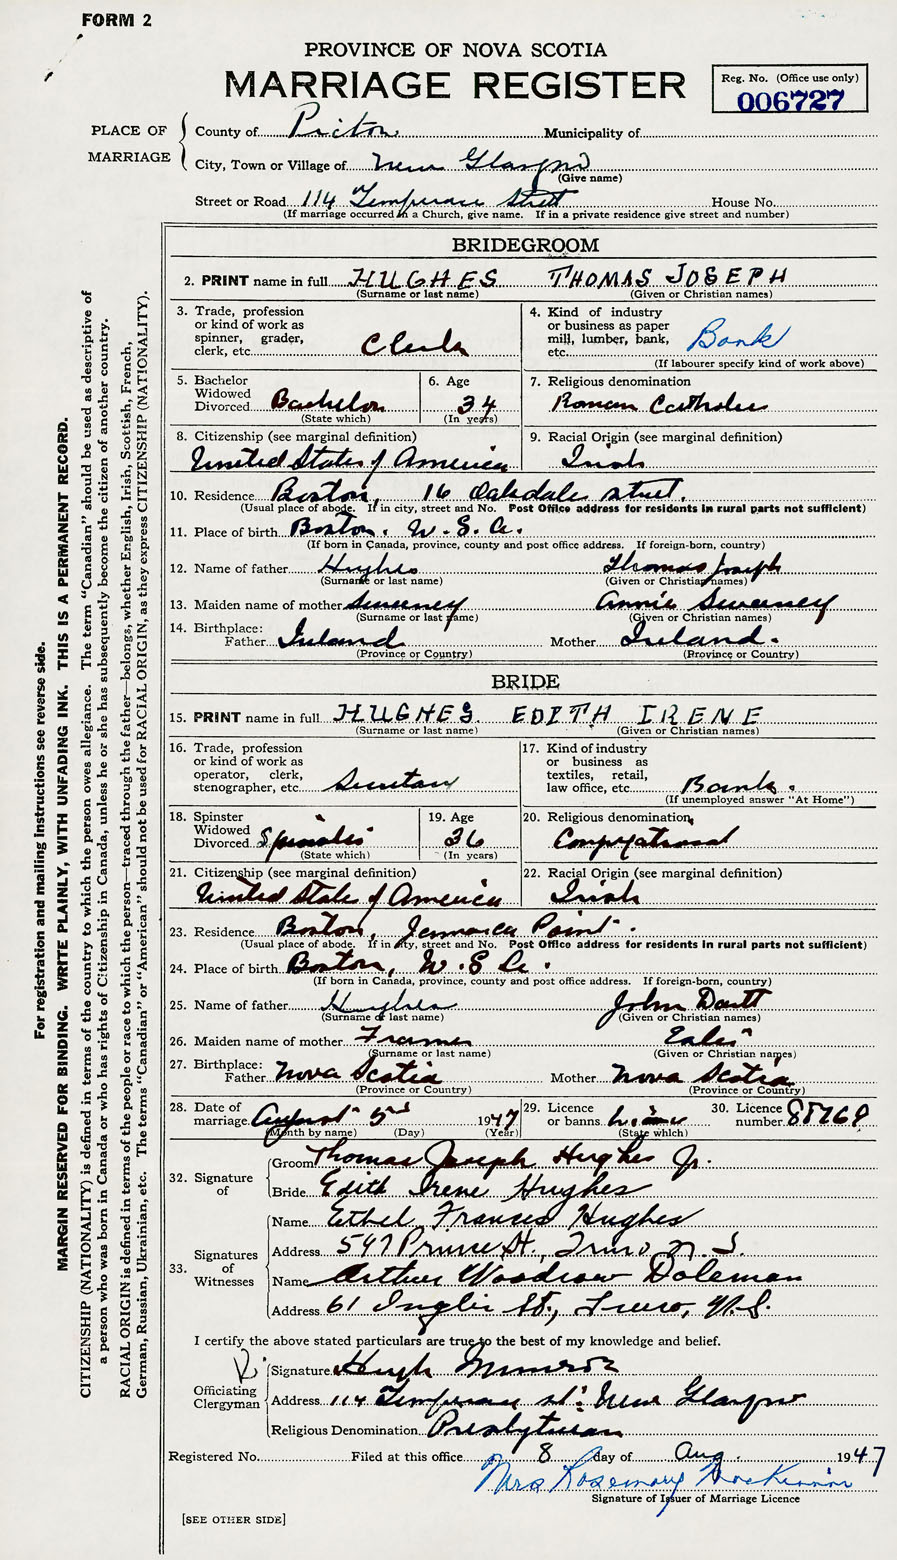 FORM 2
PROVINCE OF NOVA SCOTIA
MARRIAGE REGISTER
Reg. No. (Office use only)
006727
PLACE OF MARRIAGE
County of Pictou Municipality of
City, Town or Village of New Glasgow
(Give name)
Street or Road 114 Temperance Street House No.
(If marriage occurred in a Church, give name. If in a private residence give street and number)
BRIDEGROOM
2. PRINT name in full HUGHES THOMAS JOSEPH
(Surname or last name) (Given or Christian names)
3. Trade, profession or kind of work as spinner, grader, clerk, etc. Clerk
4. Kind of industry or business as paper mill, lumber, bank, etc. Bank
(If labourer specify kind of work above)
5. Bachelor Widowed Divorced Bachelor
(State which)
6. Age 34
(In years)
7. Religious denomination
Roman Catholic
8. Citizenship (see marginal definition)
United States of America
9. Racial Origin (see marginal definition)
Irish
10. Residence Boston, 16 Oakdale Street.
(Usual place of abode. If in city, street and No. Post Office address for residents in rural parts not sufficient)
11. Place of birth Boston. U.S.A.
(If born in Canada, province, county and post office address. If foreign-born, country)
12. Name of father Hughes Thomas Joseph
(Surname or last name) (Given or Christian names)
13. Maiden name of mother Sweeney Annie Sweeney
(Surname or last name) (Given or Christian names)
14. Birthplace: Father Ireland Mother Ireland.
(Province or Country) (Province or Country)
BRIDE
15. PRINT name in full HUGHES. EDITH IRENE
(Surname or last name) (Given or Christian names)
16. Trade, profession or kind of work as operator, clerk, stenographer, etc. Secretary
17. Kind of industry or business as textiles, retail, law office, etc. Bank.
(If unemployed answer "At Home")
18. Spinster Widowed Divorced Spinster
(State which)
19. Age 36
(In years)
20. Religious denomination
Congregational
21. Citizenship (see marginal definition)
United State of America
22. Racial Origin (see marginal definition)
Irish
23. Residence Boston, Jamaica Point.
(Usual place of abode. If in city, street and No. Post Office address for residents in rural parts not sufficient)
24. Place of birth Boston, U.S.A.
(If born in Canada, province, county and post office address. If foreign-born, country)
25. Name of father Hughes John
(Surname or last name) (Given or Christian names)
26. Maiden name of mother Frame
(Surname or last name) (Given or Christian names)
27. Birthplace: Father Nova Scotia Mother Nova Scotia
(Province or Country) (Province or Country)
28. Date of marriage August 5 1947
(Month by name) (Day) (Year)
29. Licence or banns License
(State which)
30. Licence number
32. Signature of
Groom Thomas Joseph Hughes Jr.
Bride Edith Irene Hughes
33. Signatures of Witnesses
Name Ethel Frances Hughes
Address 547 Prince St., Truro N.S.
Name Arthur Woodrow Doleman
Address 61 Inglis St., Truro, N.S.
I certify the above stated particulars are true to the best of my knowledge and belief.
Officiating Clergyman
Signature Hugh Munroe
Address 114 Temperance St. New Glasgow
Religious Denomination Presbyterian
Registered No. Filed at this office 8 day of Aug. 1947
Mrs Rosemary MacKinnon
Signature of Issuer of Marriage Licence
[SEE OTHER SIDE]
For registration and mailing instructions see reverse side.
MARGIN RESERVED FOR BINDING. WRITE PLAINLY, WITH UNFADING INK. THIS IS A PERMANENT RECORD.
CITIZENSHIP (NATIONALITY) is defined in terms of the country to which the person owes allegiance. The term "Canadian" should be used as descriptive of
a person who was born in Canada or who has rights of Citizenship in Canada, unless he or she has subsequently become the citizen of another country.
RACIAL ORIGIN is defined in terms of the people or race to which the person—traced through the father—belongs, whether English, Irish, Scottish, French,
German, Russian, Ukrainian, etc. The terms "Canadian" or "American" should not be used for RACIAL ORIGIN, as they express CITIZENSHIP (NATIONALITY).